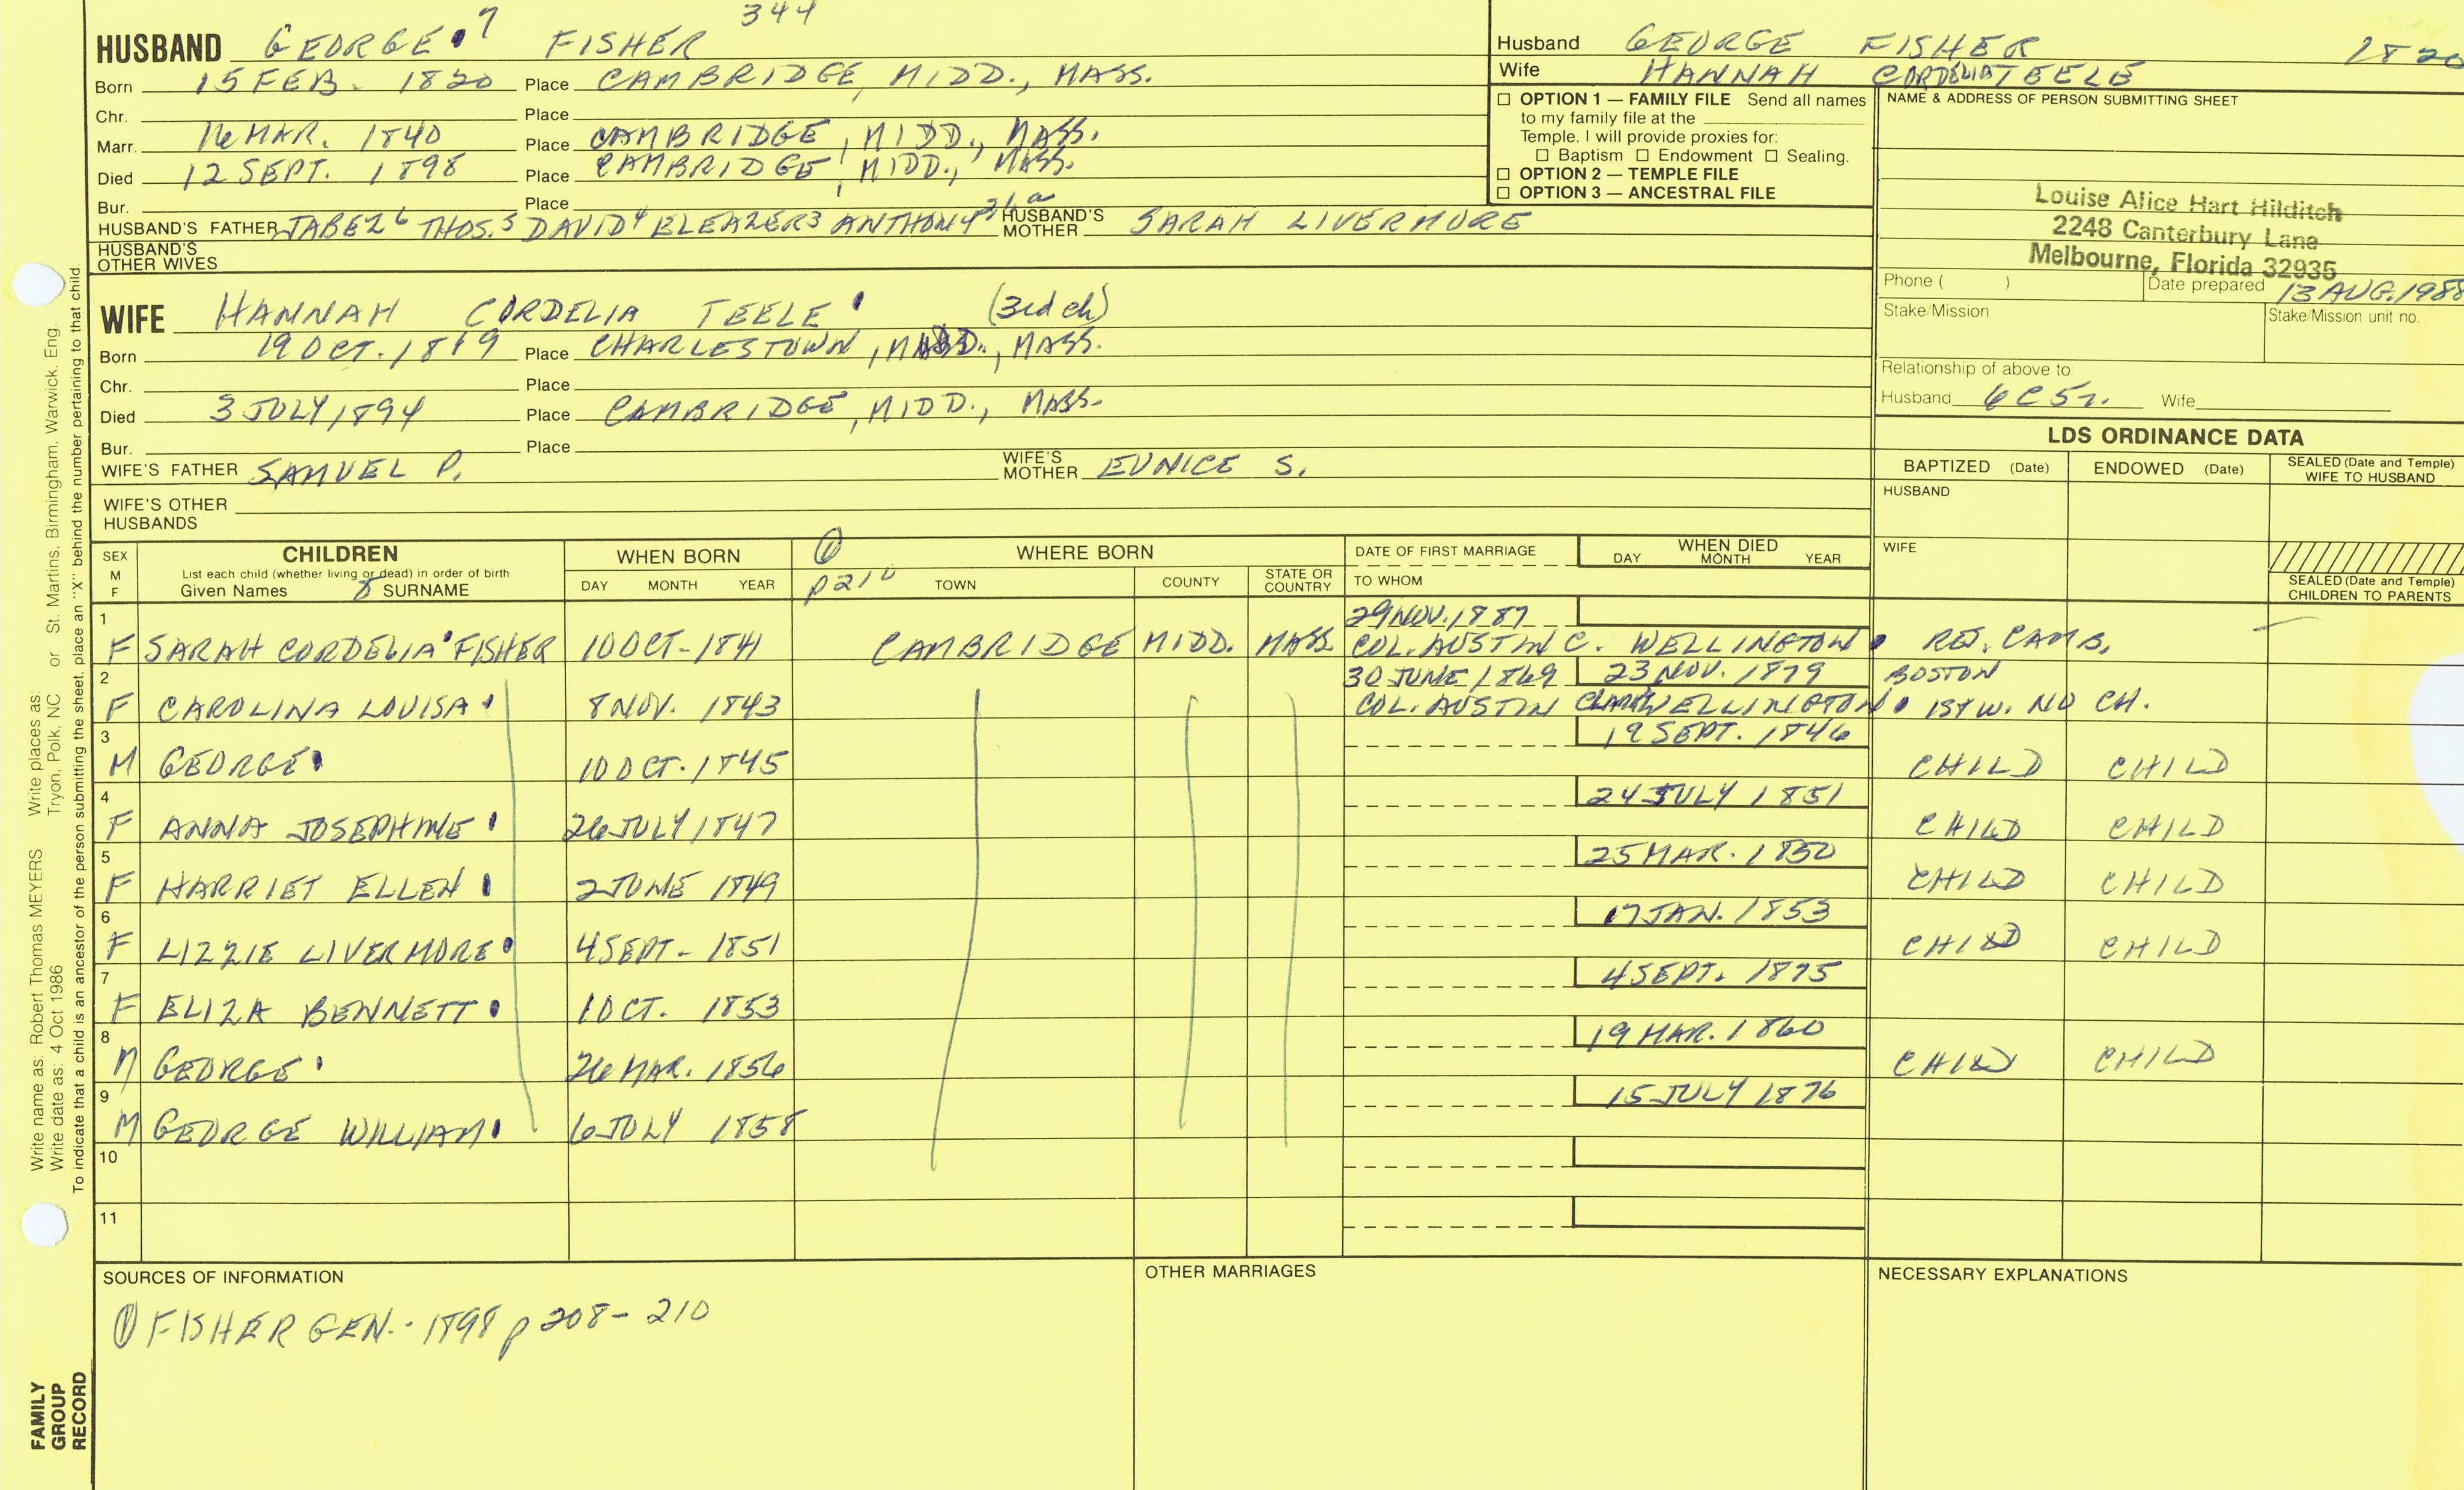 344
HUSBAND GEORGE 7 FISHER
Born 15 FEB. 1820 Place CAMBRIDGE, MIDD., MASS.
Chr. Place
Marr. 16 MAR. 1840 Place CAMBRIDGE, MIDD., MASS.
Died 12 SEPT. 1898 Place CAMBRIDGE, MIDD., MASS.
Bur. Place
HUSBAND'S FATHER JABEZ 6 THOS. 5 DAVID 4 ELEAZER 3 ANTHONY HUSBAND'S MOTHER SARAH LIVERMORE
HUSBAND'S OTHER WIVES
WIFE HANNAH CORDELIA TEELE (3rd ch)
Born 19 OCT. 1819 Place CHARLESTOWN, MIDD., MASS.
Chr. Place
Died 3 JULY 1894 Place CAMBRIDGE, MIDD., MASS.
Bur. Place
WIFE'S FATHER SAMUEL P. WIFE'S MOTHER EUNICE S.
WIFE'S OTHER HUSBANDS
Husband GEORGE FISHER 1820
Wife HANNAH CORDELIA TEELE
☐ OPTION 1 — FAMILY FILE Send all names
to my family file at the
Temple. I will provide proxies for:
☐ Baptism ☐ Endowment ☐ Sealing.
☐ OPTION 2 — TEMPLE FILE
☐ OPTION 3 — ANCESTRAL FILE
NAME & ADDRESS OF PERSON SUBMITTING SHEET
Louise Alice Hart Hilditch
2248 Canterbury Lane
Melbourne, Florida 32935
Phone ( ) Date prepared 13 AUG. 1988
Stake/Mission Stake/Mission unit no.
Relationship of above to:
Husband 6C5r. Wife
LDS ORDINANCE DATA
BAPTIZED (Date) ENDOWED (Date) SEALED (Date and Temple) WIFE TO HUSBAND
HUSBAND
WIFE
SEALED (Date and Temple) CHILDREN TO PARENTS
SEX M F
CHILDREN
List each child (whether living or dead) in order of birth
Given Names 8 SURNAME
WHEN BORN
DAY MONTH YEAR
① p210
WHERE BORN
TOWN COUNTY STATE OR COUNTRY
DATE OF FIRST MARRIAGE
TO WHOM
WHEN DIED
DAY MONTH YEAR
1 29 NOV. 1887
F SARAH CORDELIA FISHER 10 OCT. 1841 CAMBRIDGE MIDD. MASS. COL. AUSTIN C. WELLINGTON RES. CAMB.
2 30 JUNE 1869 23 NOV. 1879 BOSTON
F CAROLINA LOUISA 8 NOV. 1843 COL. AUSTIN CLARK WELLINGTON 1ST W. NO CH.
3 19 SEPT. 1846
M GEORGE 10 OCT. 1845 CHILD CHILD
4 24 JULY 1851
F ANNA JOSEPHINE 26 JULY 1847 CHILD CHILD
5 25 MAR. 1850
F HARRIET ELLEN 2 JUNE 1849 CHILD CHILD
6 17 JAN. 1853
F LIZZIE LIVERMORE 4 SEPT. 1851 CHILD CHILD
7 4 SEPT. 1875
F ELIZA BENNETT 1 OCT. 1853
8 19 MAR. 1860
M GEORGE 26 MAR. 1856 CHILD CHILD
9 15 JULY 1876
M GEORGE WILLIAM 6 JULY 1858
10
11
SOURCES OF INFORMATION
① FISHER GEN. - 1898 p 208-210
OTHER MARRIAGES
NECESSARY EXPLANATIONS
Write name as: Robert Thomas MEYERS Write places as: St. Martins, Birmingham, Warwick, Eng.
Write date as: 4 Oct 1986 Tryon, Polk, NC or
To indicate that a child is an ancestor of the person submitting the sheet, place an "X" behind the number pertaining to that child.
FAMILY
GROUP
RECORD